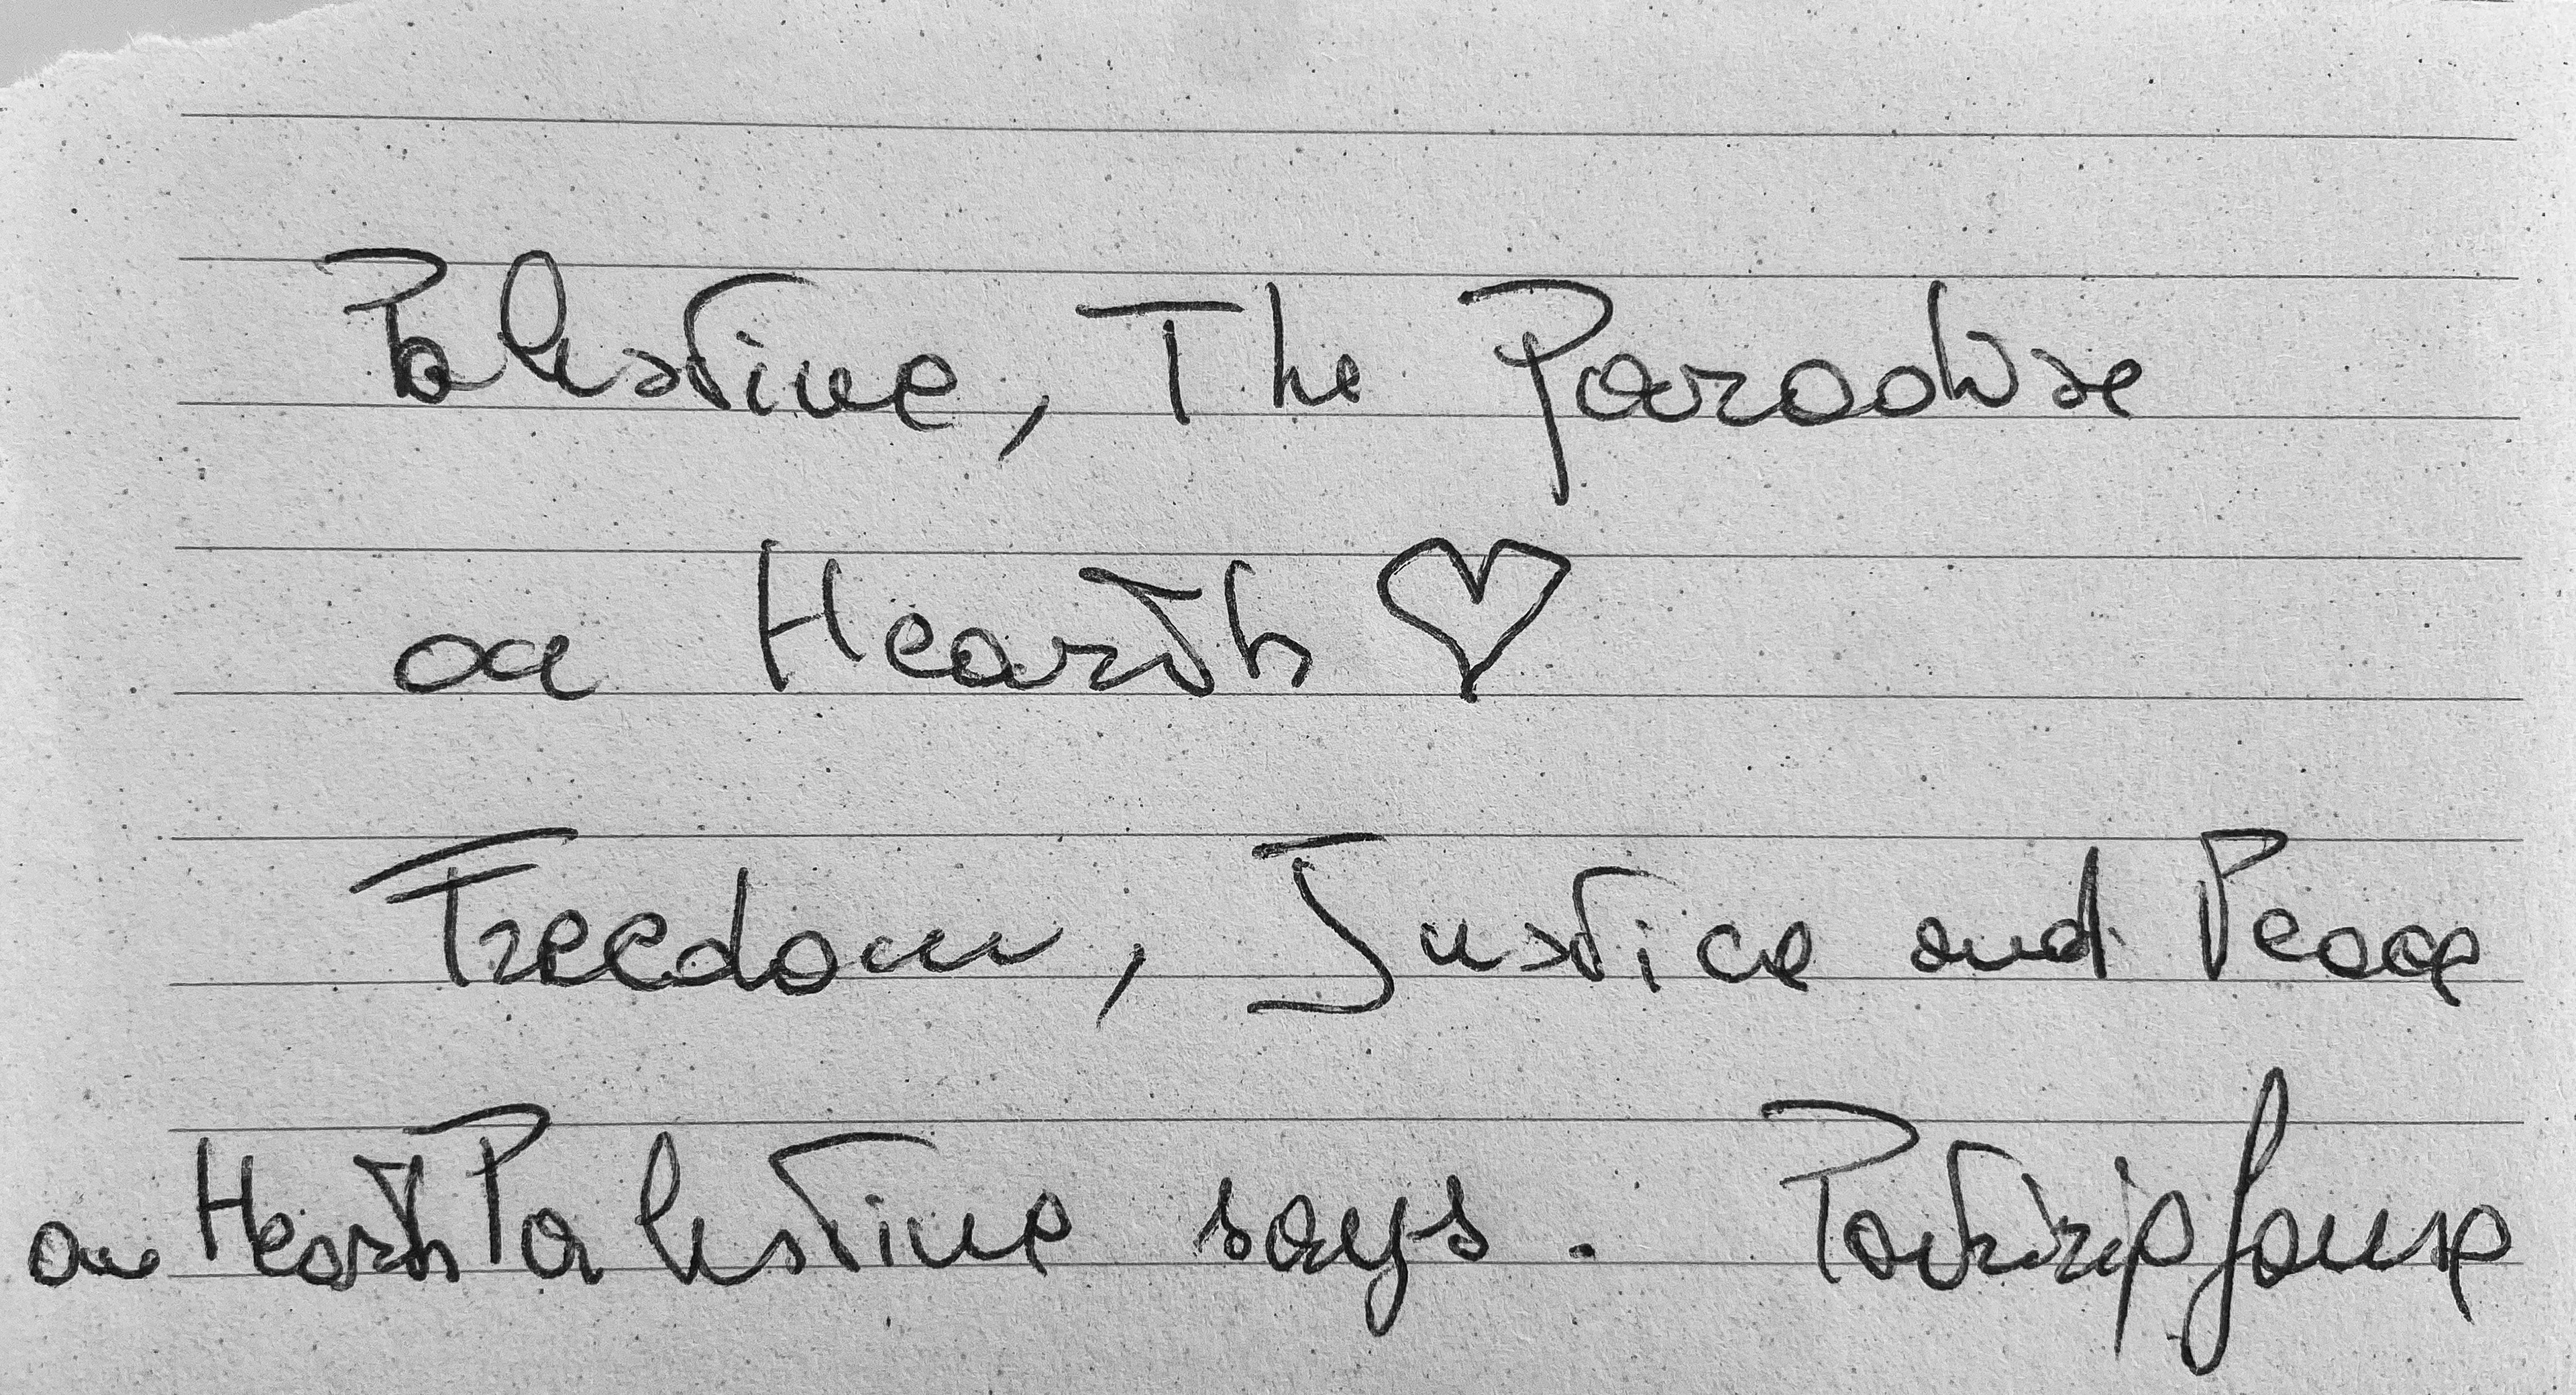 Palestine, The Paradise
on Hearth ♡
Freedom, Justice and Peace
on Hearth Palestine says.